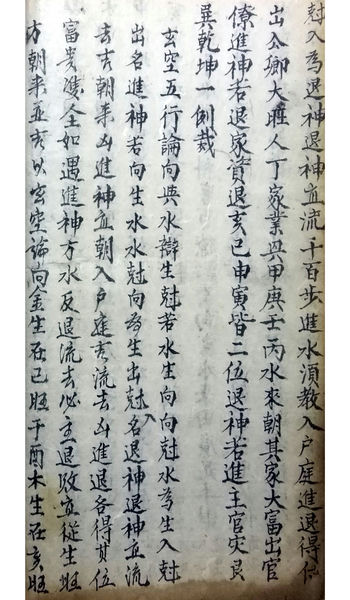 尅入為退神退神直流千百步進水須教入戶庭進退得位
出公卿大旺人丁家業興甲庚壬丙水來朝其家大富出官
僚進神若退家資退亥巳申寅皆二位退神若進主官灾艮
巽乾坤一例裁
玄空五行論向與水辯生尅若水生向向尅水為生入尅
出名進神若向生水水尅向為生出尅入名退神退神直流
去去朝来凶進神直朝入戶庭去流去凶進退各得其位
富貴雙全如遇進神方水反退流去必主退敗直従生旺
方朝来並去以玄空論向金生在巳旺于酉木生在亥旺